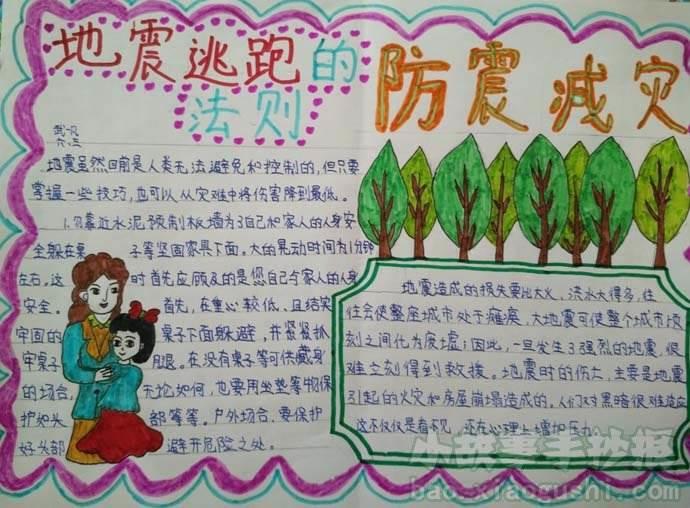 地震逃跑的
法则
防震减灾
地震虽然目前是人类无法避免和控制的,但只要
掌握一些技巧,也可以从灾难中将伤害降到最低。
1.勿靠近水泥预制板墙为了自己和家人的人身安
全躲在桌子等坚固家具下面。大的晃动时间为1分钟
左右。这时首先应顾及的是您自己令家人的人身
安全。首先,在重心较低、且结实
牢固的桌子下面躲避,并紧紧抓
牢桌子腿。在没有桌子等可供藏身
的场合,无论如何,也要用坐垫等物保
护好头部等等。户外场合,要保护
好头部避开危险之处。
地震造成的损失要比大火、洪水大得多,往
往会使整座城市处于瘫痪,大地震可使整个城市顷
刻之间化为废墟;因此,一旦发生了强烈的地震,很
难立刻得到救援。地震时的伤亡,主要是地震
引起的火灾和房屋崩塌造成的。人们对黑暗很难适应
这不仅仅是看不见,还在心理上增加压力。
小故事手抄报
bao.xiaogushi.com